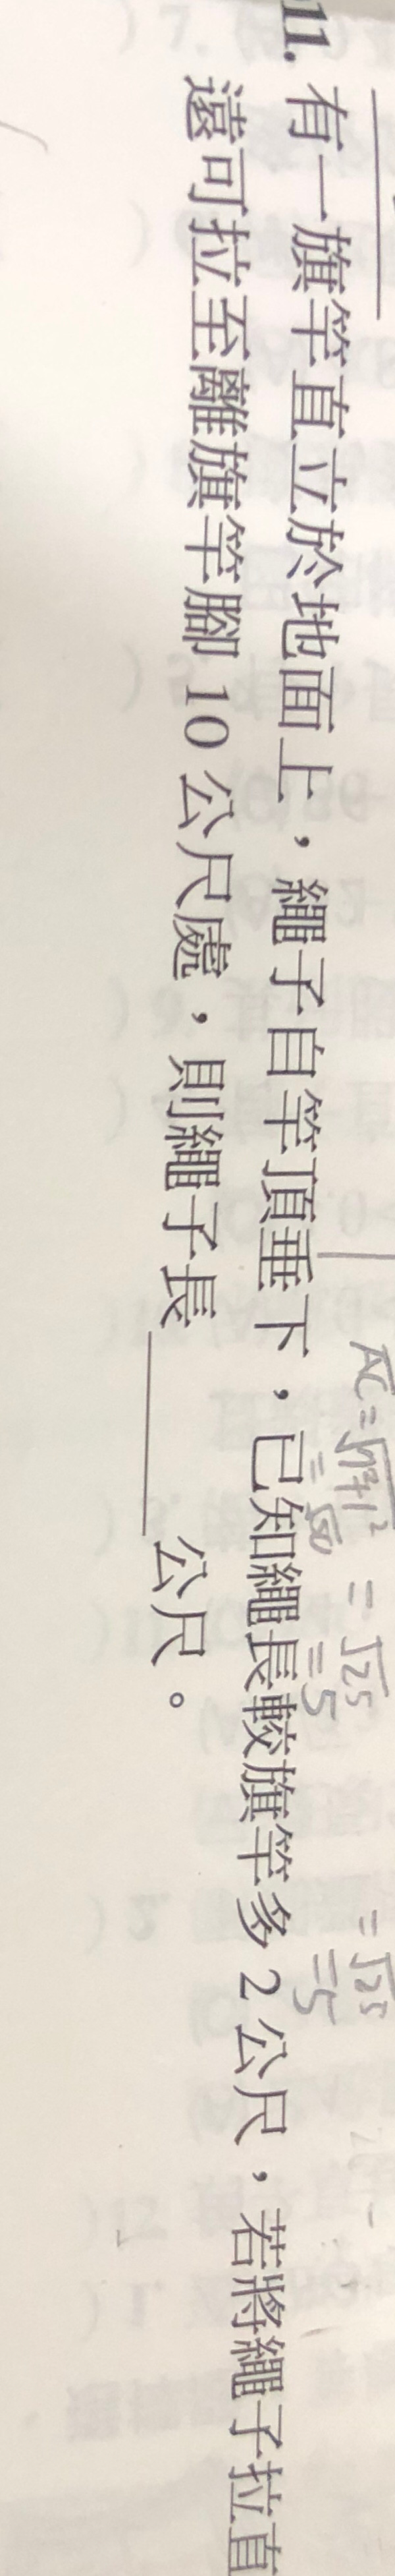 11. 有一旗竿直立於地面上，繩子自竿頂垂下，已知繩長較旗竿多 2 公尺，若將繩子拉直
還可拉至離旗竿腳 10 公尺處，則繩子長______公尺。
= √25
= 5
= √25
= 5